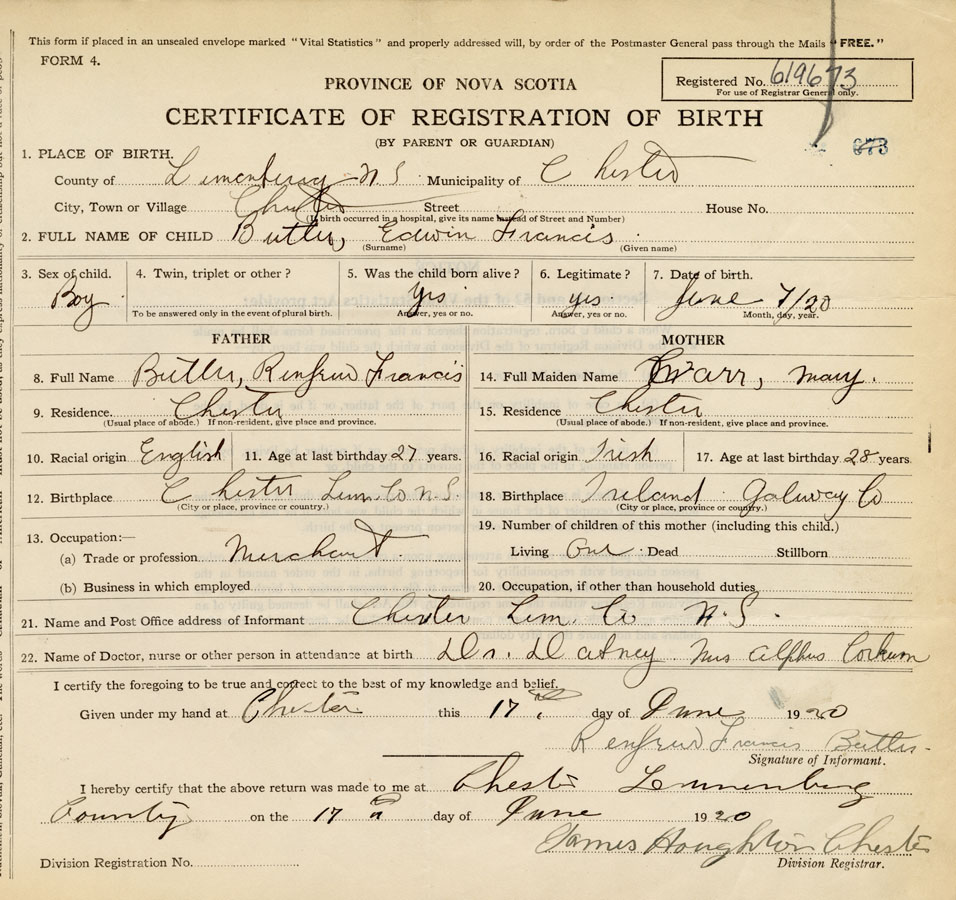 This form if placed in an unsealed envelope marked "Vital Statistics" and properly addressed will, by order of the Postmaster General pass through the Mails "FREE."
FORM 4.
Registered No. 619673
For use of Registrar General only.
PROVINCE OF NOVA SCOTIA
CERTIFICATE OF REGISTRATION OF BIRTH
(BY PARENT OR GUARDIAN)
673
1. PLACE OF BIRTH.
County of Lunenburg N S Municipality of Chester
City, Town or Village Chester Street House No.
(If birth occurred in a hospital, give its name instead of Street and Number)
2. FULL NAME OF CHILD Butler, Edwin Francis
(Surname) (Given name)
3. Sex of child. 4. Twin, triplet or other? 5. Was the child born alive? 6. Legitimate? 7. Date of birth.
Boy yes yes June 7/20
To be answered only in the event of plural birth. Answer, yes or no. Answer, yes or no. Month, day, year.
FATHER MOTHER
8. Full Name Butler, Renfrew Francis 14. Full Maiden Name Warr, Mary.
9. Residence. Chester 15. Residence Chester
(Usual place of abode.) If non-resident, give place and province. (Usual place of abode.) If non-resident, give place and province.
10. Racial origin English 11. Age at last birthday 27 years. 16. Racial origin Irish 17. Age at last birthday 28 years.
12. Birthplace Chester Lun. Co N.S. 18. Birthplace Ireland Galway Co
(City or place, province or country.) (City or place, province or country.)
13. Occupation:— 19. Number of children of this mother (including this child.)
(a) Trade or profession Merchant Living One Dead Stillborn
(b) Business in which employed 20. Occupation, if other than household duties
21. Name and Post Office address of Informant Chester Lun. Co N.S.
22. Name of Doctor, nurse or other person in attendance at birth Dr. Mrs Alphus Corkum
I certify the foregoing to be true and correct to the best of my knowledge and belief.
Given under my hand at Chester this 17 day of June 1920
Renfrew Francis Butler
Signature of Informant.
I hereby certify that the above return was made to me at Chester Lunenburg
County on the 17 th day of June 1920
James Houghton Chester
Division Registration No. Division Registrar.